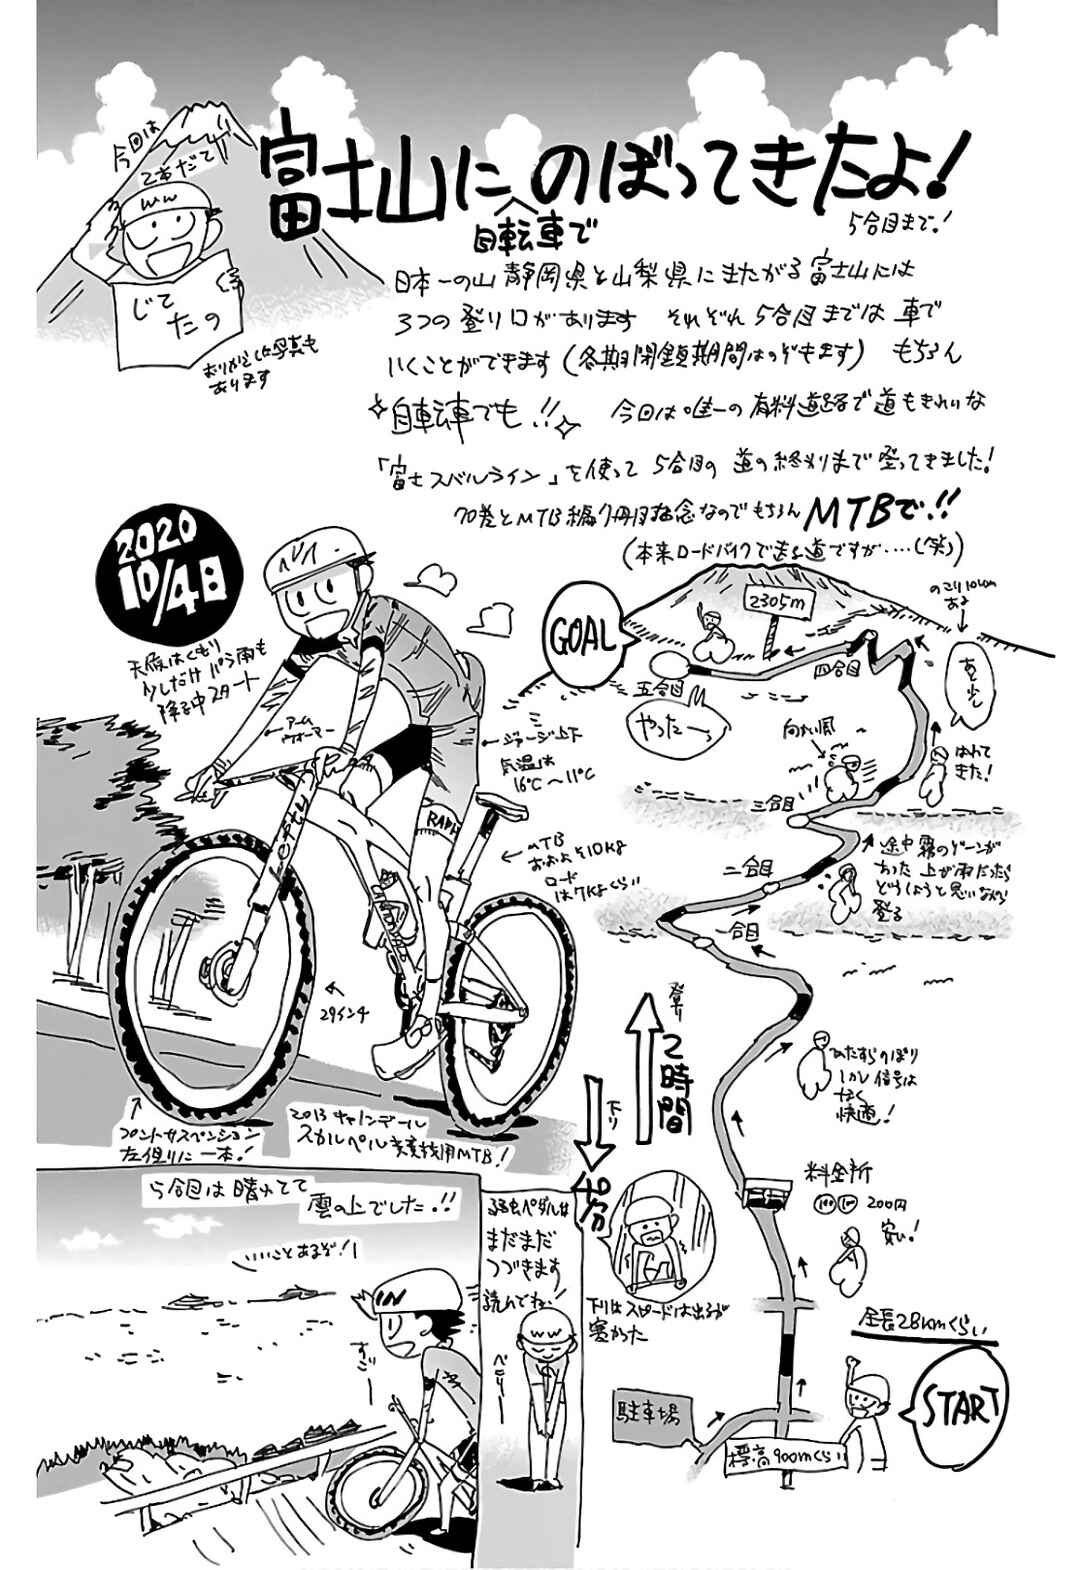 今回は
2本だて
富士山にのぼってきたよ!
自転車で
5合目まで!
ww
じてたの
おりがえし写真も
あります
日本一の山 静岡県と山梨県にまたがる富士山には
3つの登り口があります それぞれ5合目までは車で
いくことができます(各期閉鎖期間はのぞきます) もちろん
自転車でも!!
今回は唯一の有料道路で道もきれいな
「富士スバルライン」を使って 5合目の 道の終わりまで登ってきました!
70巻とMTB編 なのでもちろん MTBで!!
(本来ロードバイクで走る道ですが....(笑))
2020
10/4日
天候はくもり
少しだけパラ雨も
降る中スタート
アーム
ウォーマー
ジャージ上下
気温は
16℃〜11℃
RAPH
Lefty
MTB
おおよそ10kg
ロード
は7kgくらい
29インチ
フロントサスペンション
左側に一本!
2013 キャノンデール
スカルペル 競技用MTB!
GOAL
2305m
のこり10km
あたり
五合目
四合目
やったーっ
あと少し
向かい風
はれて
きた!
三合目
途中霧のゾーンが
あった 上が雨だったら
どうしようと思いながら
登る
二合目
一合目
登り
2時間
下り
40分
ひたすらのぼり
しかし信号は
なく
快適!
料金所
200円
安い!
下りはスピードは出るが
寒かった
全長28kmくらい
START
駐車場
標高900mくらい
5合目は晴れてて
雲の上でした!!
いいことあるぞ!!
すごー
弱虫ペダルは
まだまだ
つづきます
読んでね!
ww
ペこりー